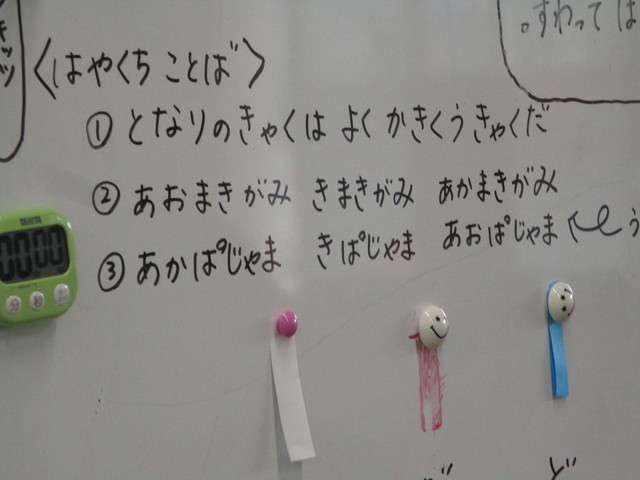 〈はやくち ことば〉
① となりの きゃくは よく かきくう きゃくだ
② あおまきがみ きまきがみ あかまきがみ
③ あかぱじゃま きぱじゃま あおぱじゃま
TANITA
00:00